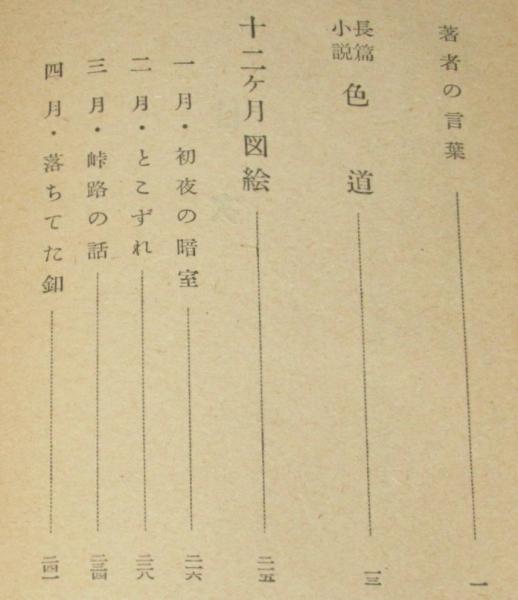 著者の言葉 一
長篇小説 色道 一三
十二ヶ月図絵 二一五
一月・初夜の暗室 二一六
二月・とこずれ 二二八
三月・峠路の話 二三四
四月・落ちてた釦 二四一